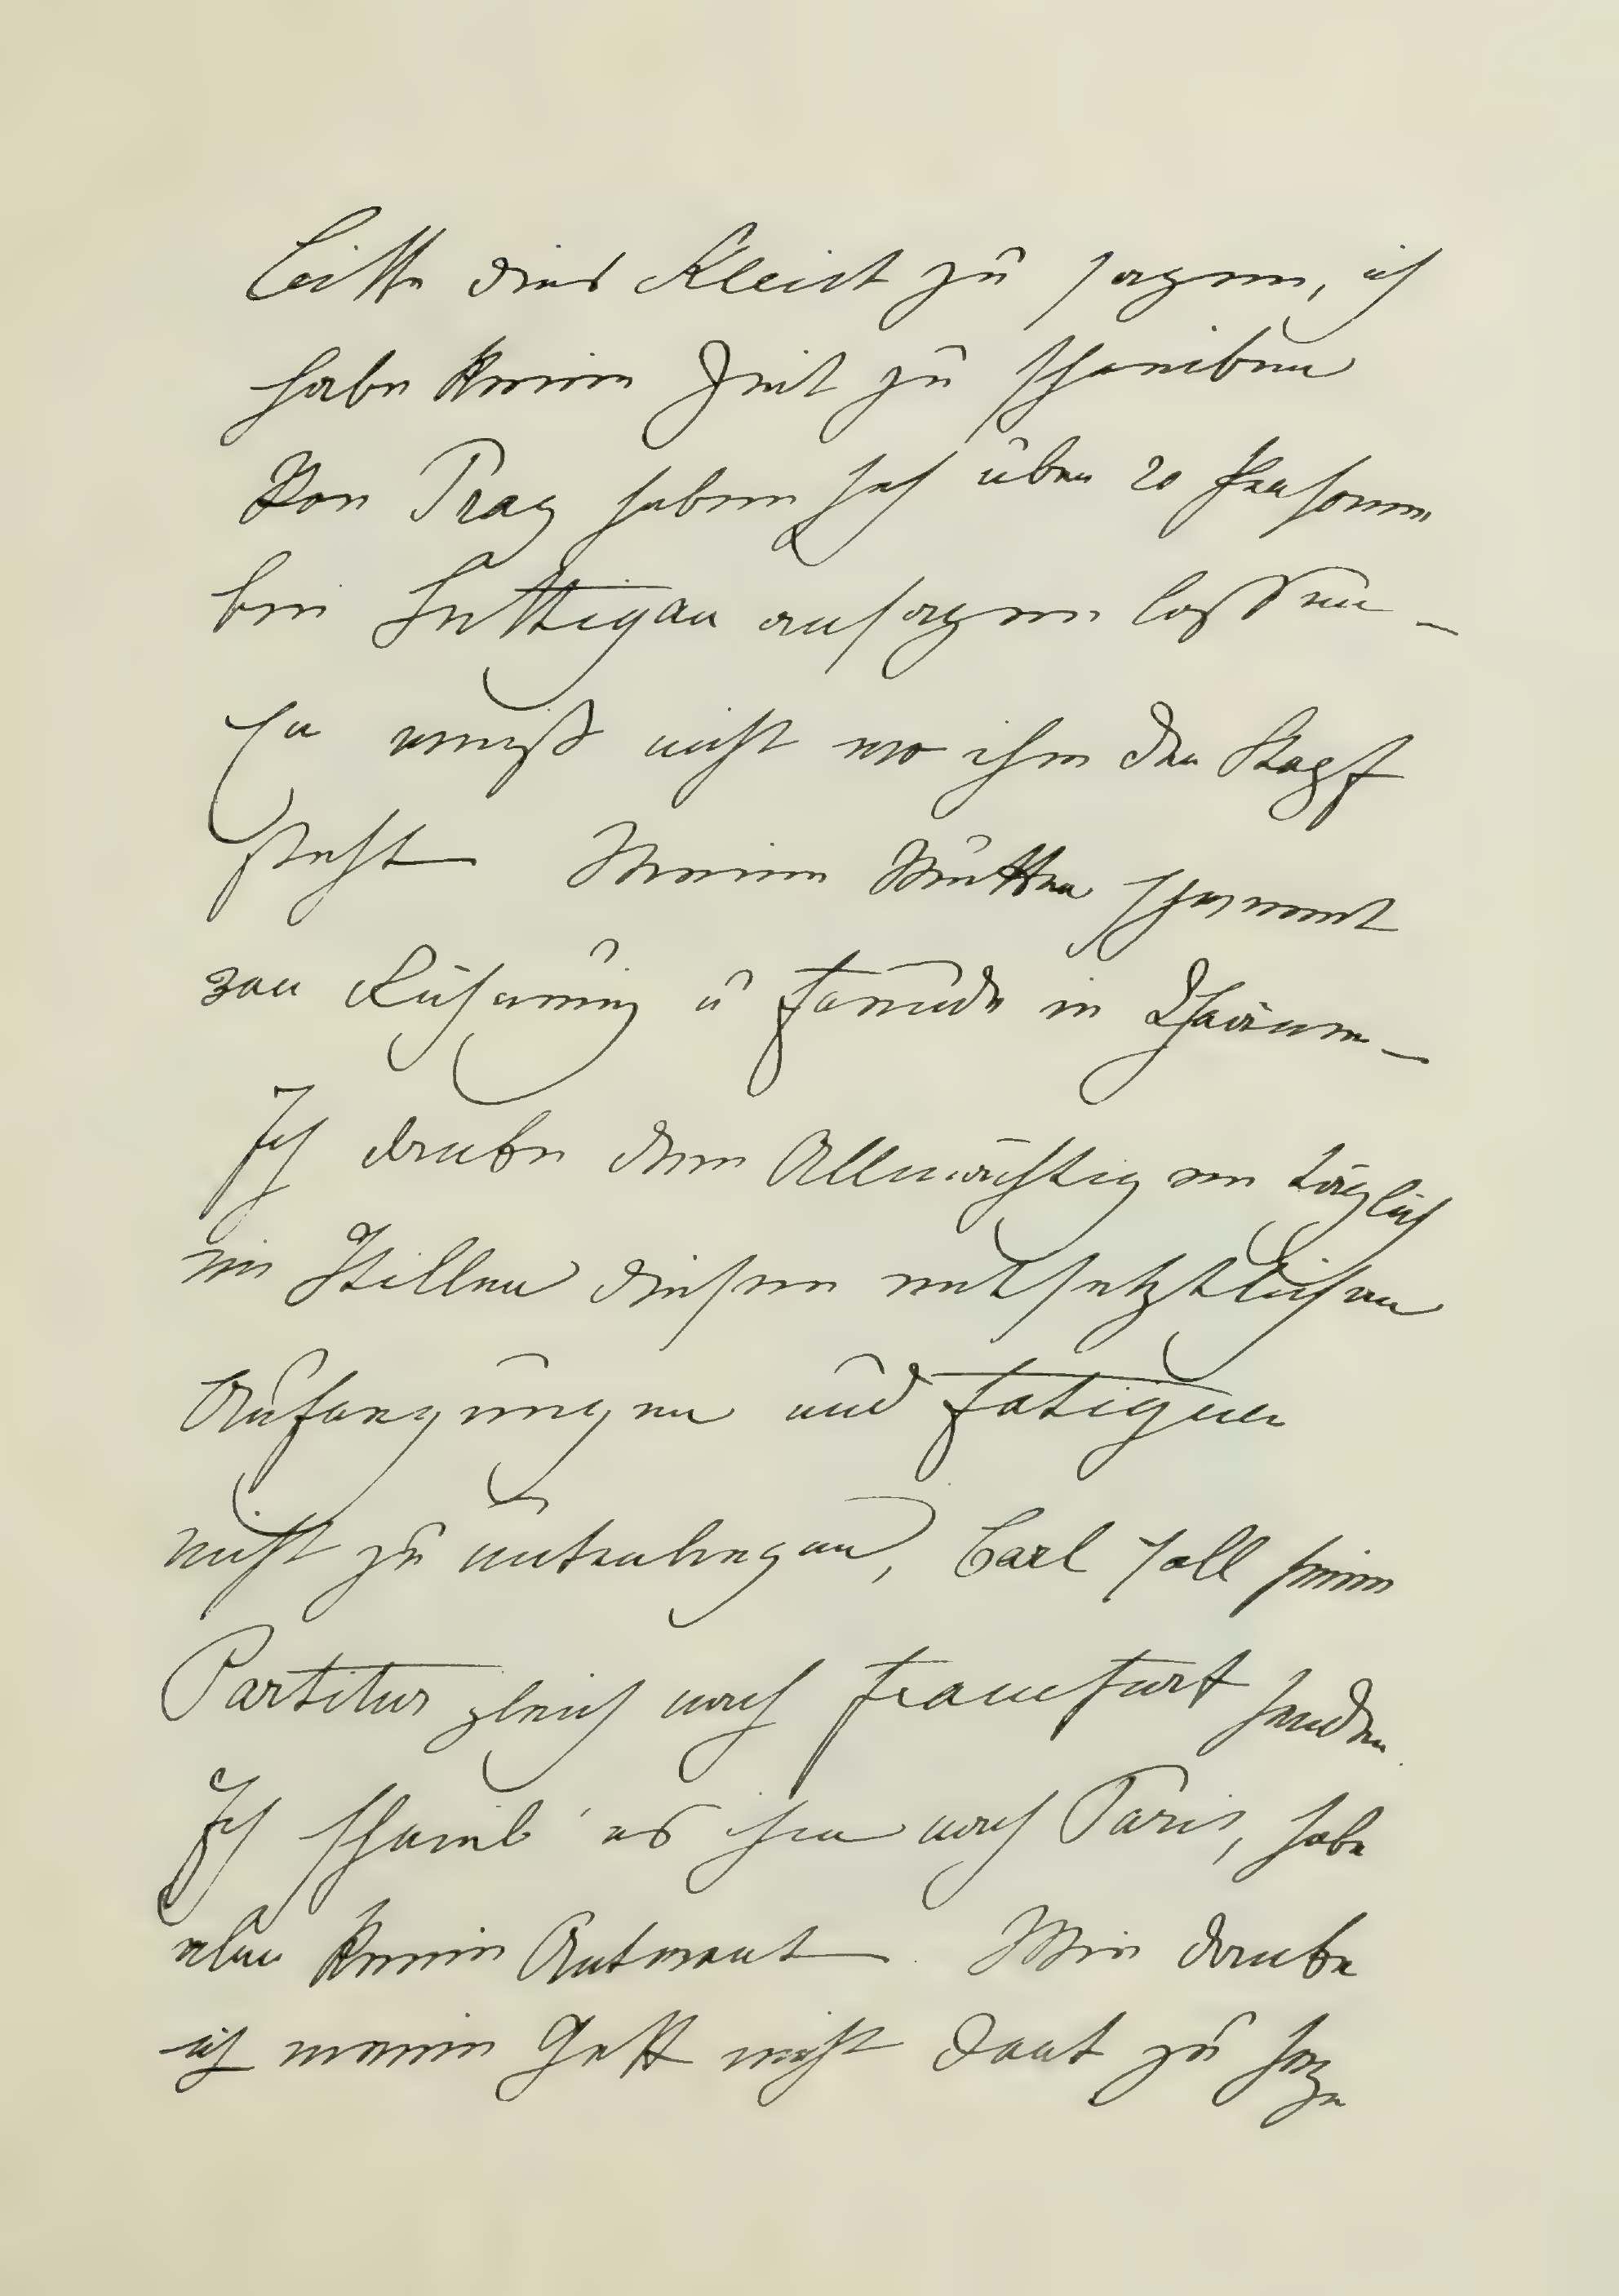 bitte dies Kleist zu sagen, ich
habe keine Zeit zu schreiben
Von Prag haben sich über 20 Personen
bei Hüttiger ansagen lassen –
Er weiß nicht wo ihm der Kopf
steht Meine Mutter schwimmt
vor Rührung u Freude in Thränen –
Ich danke dem Allmächtigen täglich
im Stillen diesen entsetzlichen
Aufregungen und Fatiguen
nicht zu unterliegen, Carl soll seine
Partitur gleich nach Frankfurt senden
Ich schrieb' es ihm nach Paris, habe
aber keine Antwort. Wie danke
ich meinem Gott nicht Braut zu sein